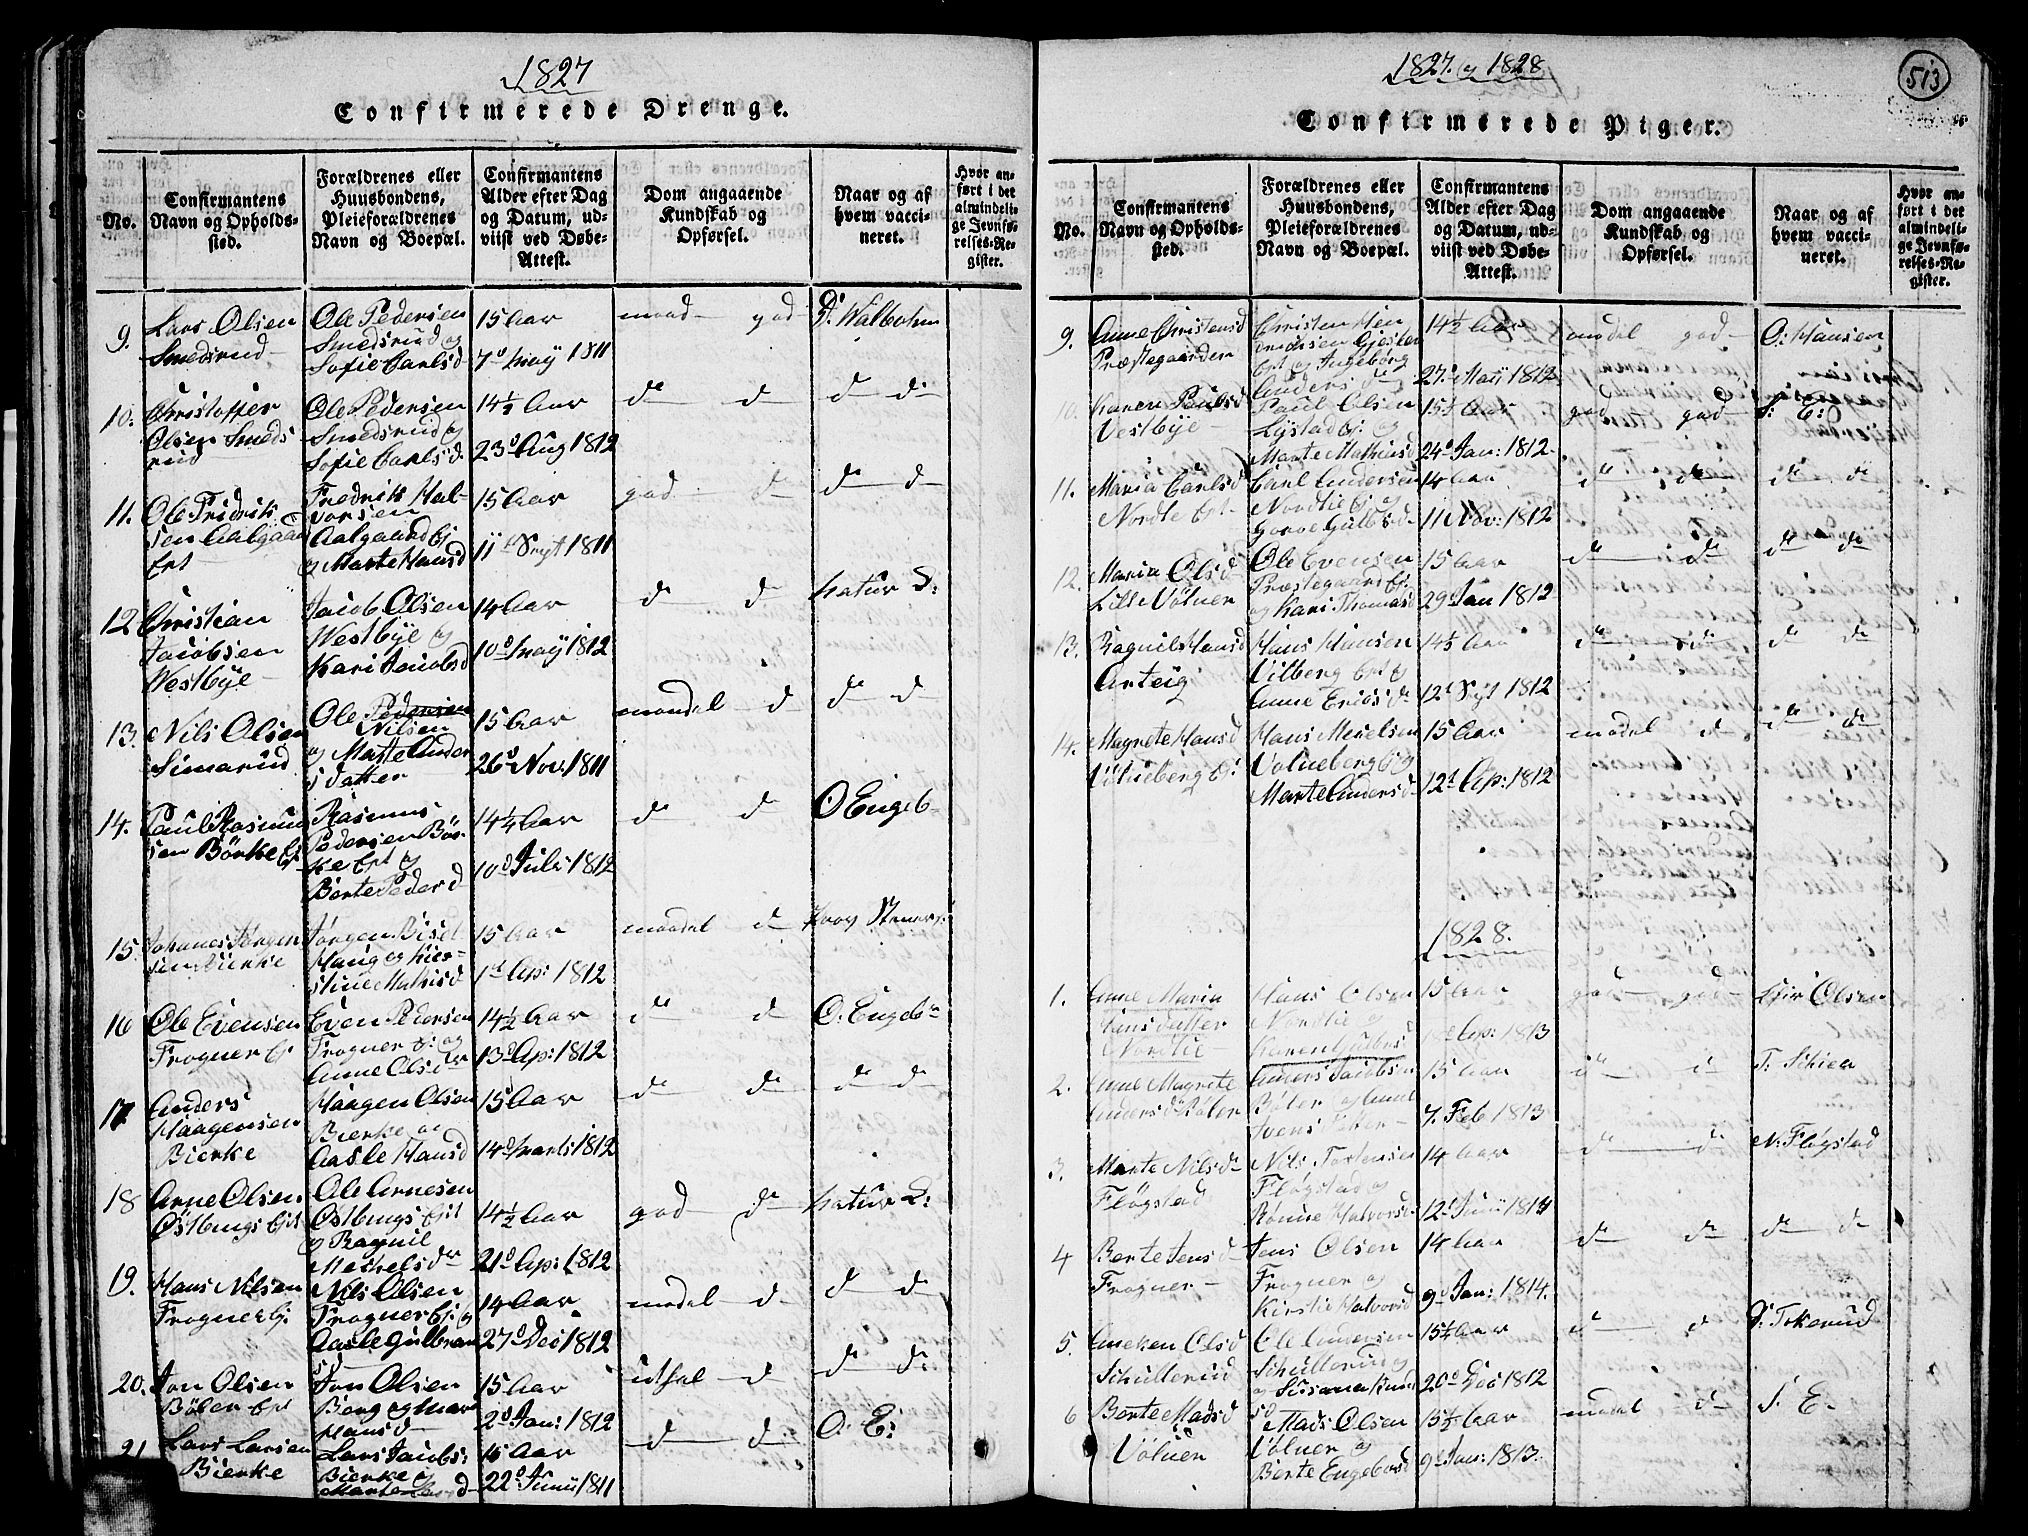 1827
Confirmerede Drenge.
No.
Confirmantens
Navn og Opholds-
sted.
Forældrenes eller
Huusbondens,
Pleieforældrenes
Navn og Boepæl.
Confirmantens
Alder efter Dag
og Datum, ud-
viist ved Døbe-
Attest.
Dom angaaende
Kundskab og
Opførsel.
Naar og af
hvem vacci-
neret.
Hvor an-
ført i det
almindeli-
ge Jevnfø-
relses-Re-
gister.
9.
Lars Olsen
Smedsrud
Ole Pedersen
Smedsrud og
Sofie Carlsd
15 Aar
7d May 1811
god
10.
Christoffer
Olsen Smeds
rud
Ole Pedersen
Smedsrud og
Sofie Carlsd.
14½ Aar
23d Aug 1812
d d
d d
11.
Ole Fridrik
sen Aalgaard
Ept
Fredrik Hal-
vorsen
Aalgaard Ej
og Marte Hansd
15 Aar
11t Sept 1811
god d
d d
12
Christian
Jacobsen
Westbye
Jacob Olsen
Westbye og
Kari Jacobsd
14 Aar
10d May 1812
d d
natur D:
13.
Nils Olsen
Simarud
Ole Pedersen
Nilsen
og Marte Ander
sdatter
15 Aar
26d Nov: 1811
maadel d
d d
14.
Paul Rasmus
sen Børke Ej
Rasmus
Pedersen Bør
ke Ept og
Berte Peders d
14¼ Aar
10d Juli 1812
d d
O Engeb-
15
Johanes Jørgen
sen Bierke
Jørgen
Haug og Kier-
stine Mathisd
15 Aar
1d Ap: 1812
maadel d
16
Ole Evensen
Frogner Ej
Even Pedersen
Frogner Ej: og
Anne Olsdtr
14½ Aar
13d Ap: 1812
d d
O: Engeb
17
Anders
Haagensen
Bierke
Haagen Olsen
Bierke og
Aasle Hansd
15 Aar
14d Marts 1812
d d
d d
18
Arne Olsen
Østbyngs Ejet
Ole Arnesen
Østbyngs Ejet
og Ragnil
14½ Aar
21d Ap: 1812
god d
natur D:
19.
Hans Nilsen
Frogner Ej.
Nils Olsen
Frogner Ej: og
Aasle Gulbran
sd
14 Aar
27d Dec 1812
madel d
d d
20.
Jon Olsen
Bøler Ept
Jon Olsen
Berg og Mar
Hansd
15 Aar
2d Jan: 1812
d
d d:
21
Lars Larsen
Bierke
Lars Jacobs:
Bierke og
Marte
Aar
22d Junii 1811
d d
O: E:
1827. og 1828
513
Confirmerede Piger.
No.
Confirmantens
Navn og Opholds-
sted.
Forældrenes eller
Huusbondens,
Pleieforældrenes
Navn og Boepæl.
Confirmantens
Alder efter Dag
og Datum, ud-
viist ved Døbe-
Attest.
Dom angaaende
Kundskab og
Opførsel.
Naar og af
hvem vacci-
neret.
Hvor an-
ført i det
almindeli-
ge Jevnfø-
relses-Re-
gister.
9.
Anne Christensd
Præstegaarden
Christen Hen
dricksen
Ept og Ingeborg
Anders d
14½ Aar
27d May 1812
madel god
O: Hansen
10.
Karen Paulsd
Vestbye
Paul Olsen
Lystad Ej: og
Marte Mathiesd
15½ Aar
24d Jan: 1812
god god
S: E:
11.
Maria Carlsd
Nordlie Ept
Carl Andersen
Nordlie Ej og
14 Aar
11 Nov: 1812
d d
d d
12.
Maria Olsd
Lille Vølner
Ole Evensen
Præstegaars Ej:
og Kari Thomasd
15 Aar
29d Jan 1812
d d
d d
13.
Ragnild Hansd
Arteig
Hans Hansen
Vilberg Ept og
Anne Ericsd
14½ Aar
12t Sept 1812
d d
d d
14.
Magnete Hansd
Hans
Marte Andersd
15 Aar
12t Ap: 1812
madel d
d d
1828.
1.
Anne Maria
Hansdatter
Nordlie
Hans Olsen
Nordlie og
Karen
15 Aar
Ap: 1813
god god
Olsen
2.
Anne Magrete
Andersd Bøler
Anders Jacobsen
Bøler og
15 Aar
7. Feb 1813
3.
Marte Nilsd
Fløgstad
Nils
Fløgstad og
Rønnie Halvorsd
14 Aar
12t Junii 1814
d d
N: Fløgstad
4
Berte Jensd
Frogner
Jens Olsen
Frogner og
Kirstie Halvorsd
14 Aar
9d Jan: 1814.
d d
d d
5.
Aneken Olsd
Schullerud
Ole Andersen
Schullerud
og Susana
15¼ Aar
20d Dec 1812
d d
6
Berte Madsd
Vølner
Mads Olsen
Vølner og
Berte Engebrsd
15½ Aar
9d Jan: 1813.
madel d
S E